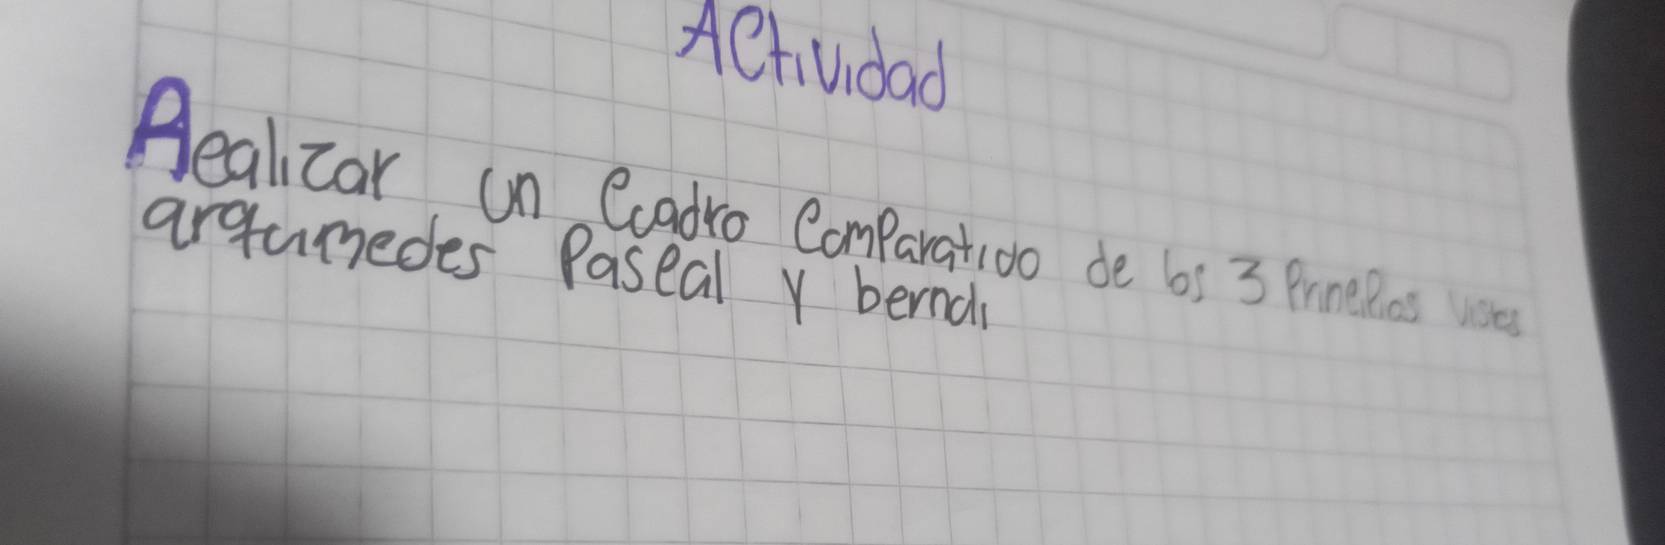 Actividad
Realizar un Cuadro Comparatido de los 3 Prinepios vistos
arqumedes Pascal y bernoli